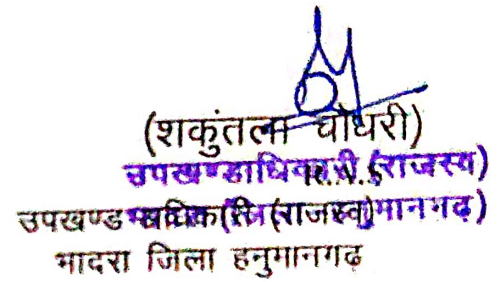 (शकुंतला चौधरी)
उपखण्डाधिकारी (राजस्व)
उपखण्ड अधिकारी (राजस्व)
भादरा जिला हनुमानगढ़